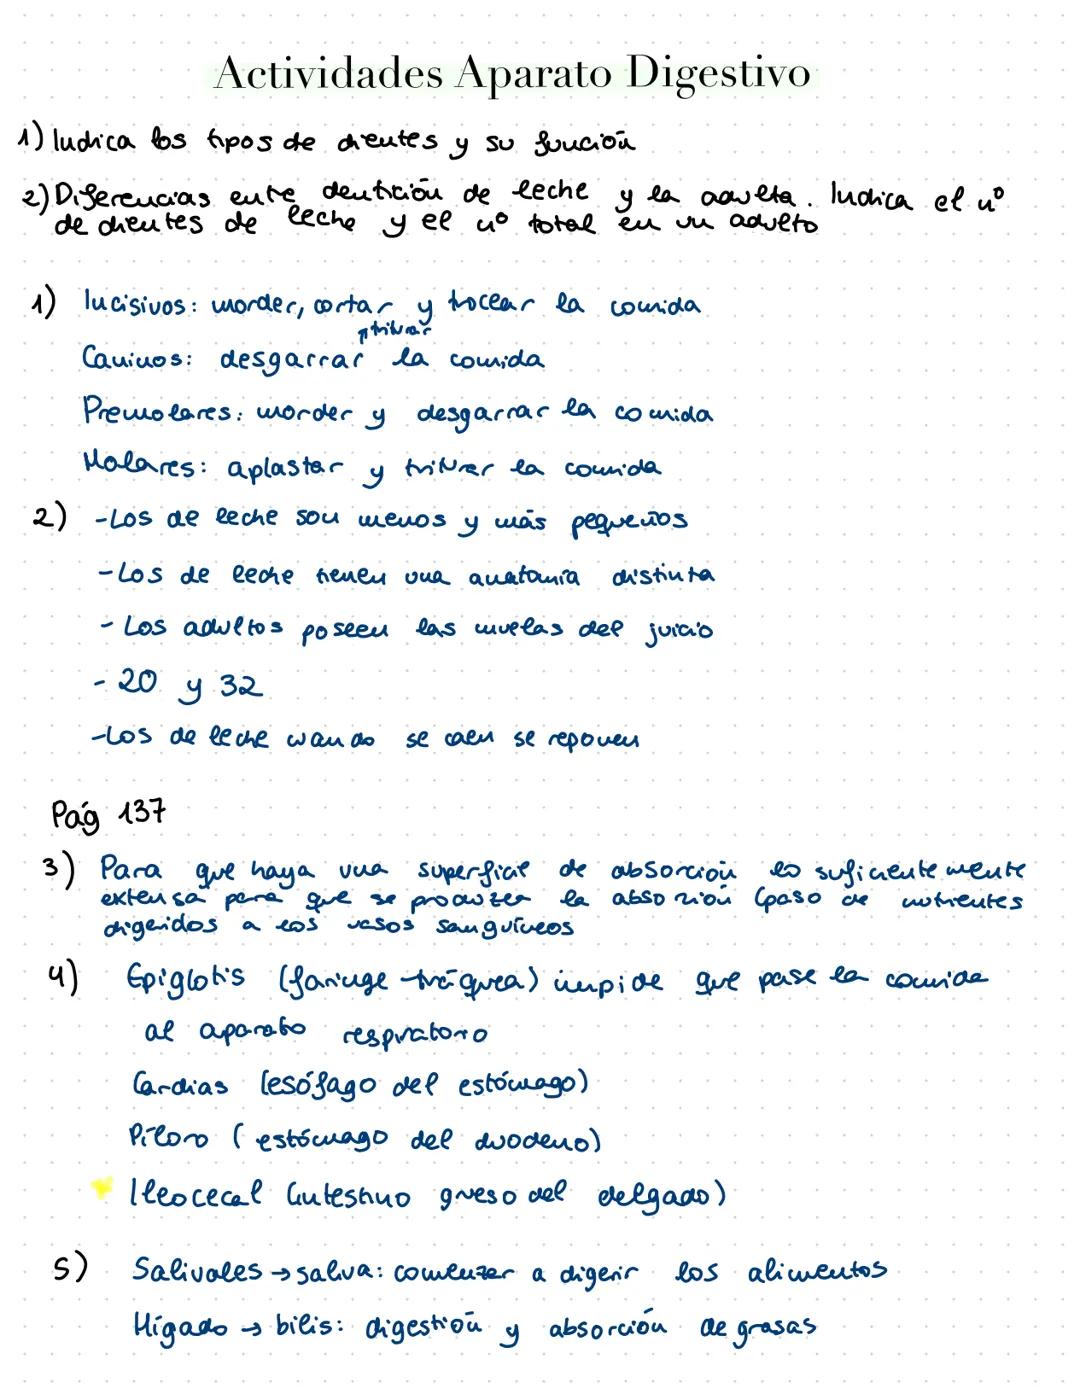 Actividades Aparato Digestivo
1) Indica los tipos de dientes y su función
2) Diferencias entre dentición de leche y la adulta. Indica el nº
de dientes de leche y el nº total en un adulto
1) Incisivos: morder, cortar y trocear la comida
y triturar
Caninos: desgarrar la comida
Premolares: morder y desgarrar la comida
Molares: aplastar y triturar la comida
2) -Los de leche son menos y más pequeños
-Los de leche tienen una anatomía distinta
- Los adultos poseen las muelas del juicio
- 20 y 32
-Los de leche cuando se caen se reponen
Pág 137
3) Para que haya una superficie de absorción lo suficientemente
extensa para que se produzca la absorción (paso de nutrientes
digeridos a los vasos sanguíneos
4) Epiglotis (faringe-tráquea) impide que pase la comida
al aparato respiratorio
Cardias (esófago del estómago)
Píloro (estómago del duodeno)
Ileocecal (intestino grueso del delgado)
5) Salivales → saliva: comenzar a digerir los alimentos
Hígado → bilis: digestión y absorción de grasas